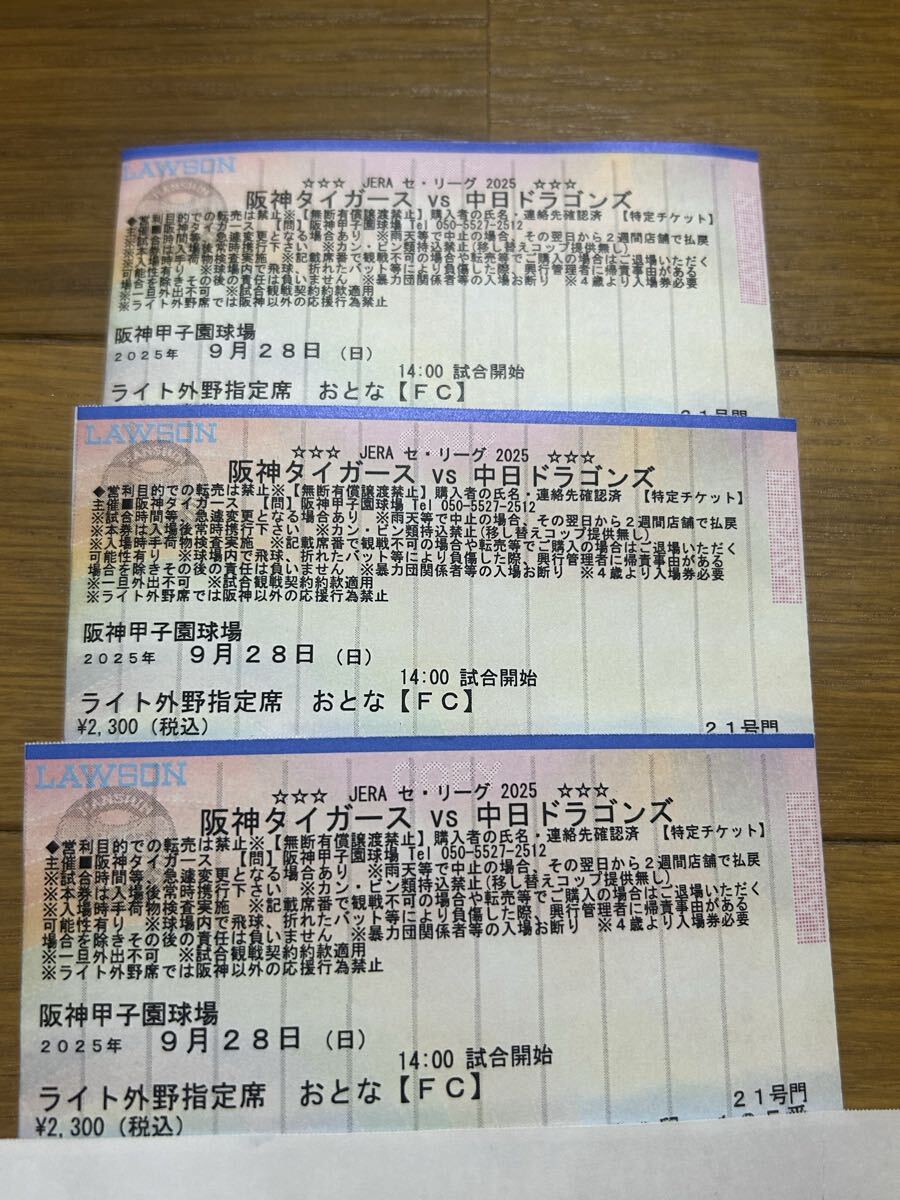 LAWSON
☆☆☆ JERA セ・リーグ 2025 ☆☆☆
阪神タイガース vs 中日ドラゴンズ
◆営利目的での転売は禁止※【無断有償譲渡禁止】購入者の氏名・連絡先確認済 【特定チケット】
主催■阪神タイガース 【問】阪神甲子園球場 Tel 050-5527-2512
※試合時間等急遽変更となる場合あり ※雨天等で中止の場合、その翌日から2週間店舗で払戻
※本券は入場後常時携行下さい ※カン・ビン類持込禁止(移し替えコップ提供無し)
※入場時手荷物検査実施 ※記載席番で観戦不可の場合や転売等でご購入の場合はご退場いただく
阪神甲子園球場
2025年 9月28日 (日)
14:00 試合開始
ライト外野指定席 おとな【FC】
21号門
LAWSON
☆☆☆ JERA セ・リーグ 2025 ☆☆☆
阪神タイガース vs 中日ドラゴンズ
◆営利目的での転売は禁止※【無断有償譲渡禁止】購入者の氏名・連絡先確認済 【特定チケット】
主催■阪神タイガース 【問】阪神甲子園球場 Tel 050-5527-2512
※試合時間等急遽変更となる場合あり ※雨天等で中止の場合、その翌日から2週間店舗で払戻
※本券は入場後常時携行下さい ※カン・ビン類持込禁止(移し替えコップ提供無し)
※入場時手荷物検査実施 ※記載席番で観戦不可の場合や転売等でご購入の場合はご退場いただく
※一旦外出不可 ※試合観戦契約約款適用
※ライト外野席では阪神以外の応援行為禁止
阪神甲子園球場
2025年 9月28日 (日)
14:00 試合開始
ライト外野指定席 おとな【FC】
¥2,300 (税込)
21号門
LAWSON
COPY
☆☆☆ JERA セ・リーグ 2025 ☆☆☆
阪神タイガース vs 中日ドラゴンズ
◆営利目的での転売は禁止※【無断有償譲渡禁止】購入者の氏名・連絡先確認済 【特定チケット】
主催■阪神タイガース 【問】阪神甲子園球場 Tel 050-5527-2512
※試合時間等急遽変更となる場合あり ※雨天等で中止の場合、その翌日から2週間店舗で払戻
※本券は入場後常時携行下さい ※カン・ビン類持込禁止(移し替えコップ提供無し)
※入場時手荷物検査実施 ※記載席番で観戦不可の場合や転売等でご購入の場合はご退場いただく
可能性有 ※球場内で飛球、折れたバット等により負傷した際、興行管理者に帰責事由がある
場合を除きその後の責任は負いません ※暴力団関係者等の入場お断り ※4歳より入場券必要
※一旦外出不可 ※試合観戦契約約款適用
※ライト外野席では阪神以外の応援行為禁止
阪神甲子園球場
2025年 9月28日 (日)
14:00 試合開始
ライト外野指定席 おとな【FC】
¥2,300 (税込)
21号門